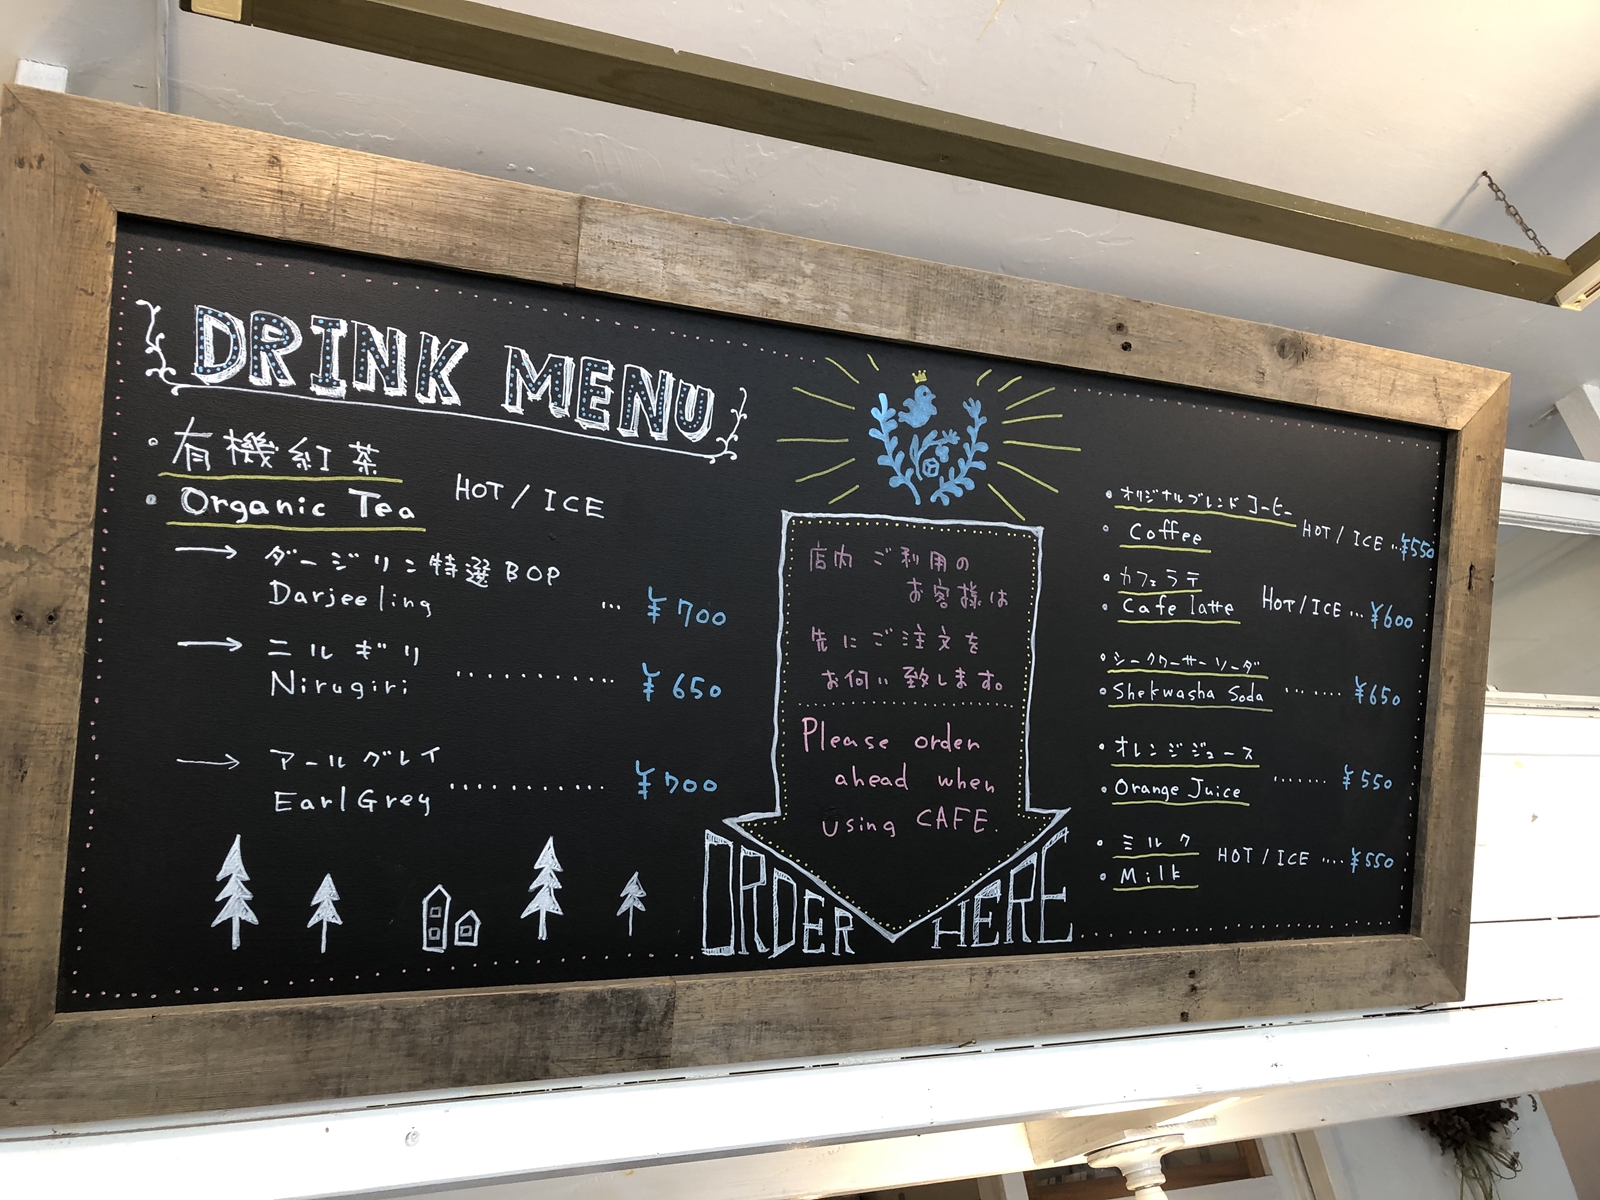 DRINK MENU
• 有機紅茶
• Organic Tea
HOT / ICE
→ ダージリン特選 BOP
Darjeeling ... ¥700
→ ニルギリ
Nirugiri ............ ¥650
→ アールグレイ
Earl Grey ............ ¥700
店内 ご利用の
お客様は
先に ご注文を
お伺い致します。
Please order
ahead when
using CAFE.
ORDER HERE
• オリジナルブレンド コーヒー
• Coffee
HOT / ICE ... ¥550
• カフェラテ
• Cafe latte
HOT / ICE ... ¥600
• シークワーサーソーダ
• Shekwasha Soda ....... ¥650
• オレンジジュース
• Orange Juice ....... ¥550
• ミルク
• Milk
HOT / ICE .... ¥550